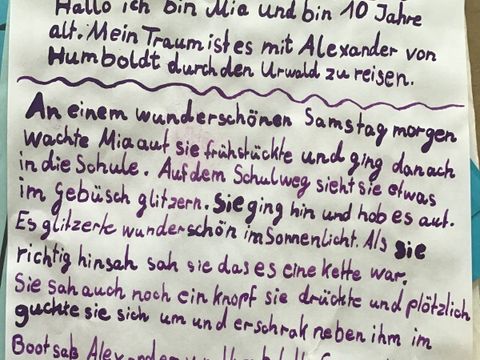 Hallo ich bin Mia und bin 10 Jahre
alt. Mein Traum ist es mit Alexander von
Humboldt durch den Urwald zu reisen.
An einem wunderschönen Samstag morgen
wachte Mia auf sie frühstückte und ging danach
in die Schule. Auf dem Schulweg sieht sie etwas
im Gebüsch glitzern. Sie ging hin und hob es auf.
Es glitzerte wunderschön im Sonnenlicht. Als sie
richtig hinsah sah sie das es eine Kette war.
Sie sah auch noch ein Knopf sie drückte und plötzlich
guckte sie sich um und erschrak neben ihm im
Boot saß Alexander von